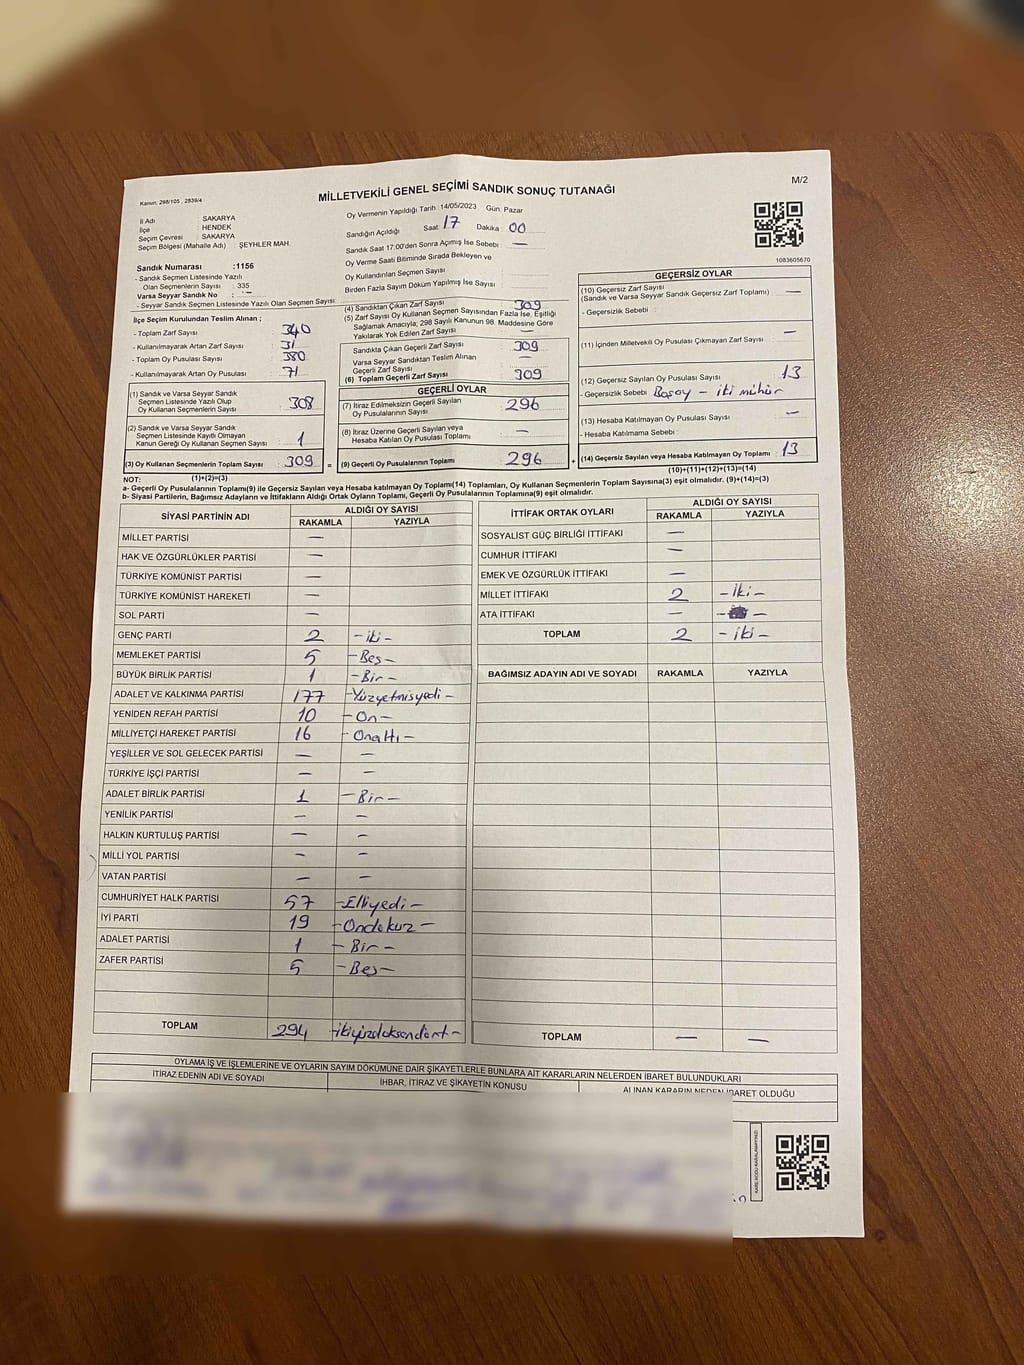 MİLLETVEKİLİ GENEL SEÇİMİ SANDIK SONUÇ TUTANAĞI
M/2
Kanun: 298/105 , 2839/4
İl Adı : SAKARYA
İlçe : HENDEK
Seçim Çevresi : SAKARYA
Seçim Bölgesi (Mahalle Adı) : ŞEYHLER MAH.
Sandık Numarası :1156
- Sandık Seçmen Listesinde Yazılı
Olan Seçmenlerin Sayısı : 335
Varsa Seyyar Sandık No : —
- Seyyar Sandık Seçmen Listesinde Yazılı Olan Seçmen Sayısı:
Oy Vermenin Yapıldığı Tarih :14/05/2023 Gün: Pazar
Sandığın Açıldığı Saat: 17 Dakika : 00
Sandık Saat 17:00'den Sonra Açılmış İse Sebebi : —
Oy Verme Saati Bitiminde Sırada Bekleyen ve
Oy Kullandırılan Seçmen Sayısı
Birden Fazla Sayım Döküm Yapılmış İse Sayısı
1083605670
İlçe Seçim Kurulundan Teslim Alınan ;
- Toplam Zarf Sayısı : 340
- Kullanılmayarak Artan Zarf Sayısı : 31
- Toplam Oy Pusulası Sayısı : 380
- Kullanılmayarak Artan Oy Pusulası : 71
(1) Sandık ve Varsa Seyyar Sandık
Seçmen Listesinde Yazılı Olup
Oy Kullanan Seçmenlerin Sayısı : 308
(2) Sandık ve Varsa Seyyar Sandık
Seçmen Listesinde Kayıtlı Olmayan
Kanun Gereği Oy Kullanan Seçmen Sayısı : 1
(3) Oy Kullanan Seçmenlerin Toplam Sayısı : 309
(1)+(2)=(3)
(4) Sandıktan Çıkan Zarf Sayısı : 309
(5) Zarf Sayısı Oy Kullanan Seçmen Sayısından Fazla İse, Eşitliği
Sağlamak Amacıyla; 298 Sayılı Kanunun 98. Maddesine Göre
Yakılarak Yok Edilen Zarf Sayısı : —
Sandıkta Çıkan Geçerli Zarf Sayısı : 309
Varsa Seyyar Sandıktan Teslim Alınan
Geçerli Zarf Sayısı : —
(6) Toplam Geçerli Zarf Sayısı : 309
GEÇERLİ OYLAR
(7) İtiraz Edilmeksizin Geçerli Sayılan
Oy Pusulalarının Sayısı : 296
(8) İtiraz Üzerine Geçerli Sayılan veya
Hesaba Katılan Oy Pusulası Toplamı : —
= (9) Geçerli Oy Pusulalarının Toplamı : 296
GEÇERSİZ OYLAR
(10) Geçersiz Zarf Sayısı
(Sandık ve Varsa Seyyar Sandık Geçersiz Zarf Toplamı) : —
- Geçersizlik Sebebi :
(11) İçinden Milletvekili Oy Pusulası Çıkmayan Zarf Sayısı : —
(12) Geçersiz Sayılan Oy Pusulası Sayısı : 13
- Geçersizlik Sebebi : Başoy - iki mühür
(13) Hesaba Katılmayan Oy Pusulası Sayısı : —
- Hesaba Katılmama Sebebi :
+ (14) Geçersiz Sayılan veya Hesaba Katılmayan Oy Toplamı : 13
(10)+(11)+(12)+(13)=(14)
NOT:
a- Geçerli Oy Pusulalarının Toplamı(9) ile Geçersiz Sayılan veya Hesaba katılmayan Oy Toplam(14) Toplamları, Oy Kullanan Seçmenlerin Toplam Sayısına(3) eşit olmalıdır. (9)+(14)=(3)
b- Siyasi Partilerin, Bağımsız Adayların ve İttifakların Aldığı Ortak Oyların Toplamı, Geçerli Oy Pusulalarının Toplamına(9) eşit olmalıdır.
SİYASİ PARTİNİN ADI ALDIĞI OY SAYISI
RAKAMLA YAZIYLA
MİLLET PARTİSİ —
HAK VE ÖZGÜRLÜKLER PARTİSİ —
TÜRKİYE KOMÜNİST PARTİSİ —
TÜRKİYE KOMÜNİST HAREKETİ —
SOL PARTİ —
GENÇ PARTİ 2 -iki-
MEMLEKET PARTİSİ 5 -Beş-
BÜYÜK BİRLİK PARTİSİ 1 -Bir-
ADALET VE KALKINMA PARTİSİ 177 -Yüzyetmişyedi-
YENİDEN REFAH PARTİSİ 10 -On-
MİLLİYETÇİ HAREKET PARTİSİ 16 -Onaltı-
YEŞİLLER VE SOL GELECEK PARTİSİ — —
TÜRKİYE İŞÇİ PARTİSİ — —
ADALET BİRLİK PARTİSİ 1 -Bir-
YENİLİK PARTİSİ — —
HALKIN KURTULUŞ PARTİSİ — —
MİLLİ YOL PARTİSİ — —
VATAN PARTİSİ — —
CUMHURİYET HALK PARTİSİ 57 -Elliyedi-
İYİ PARTİ 19 -Ondokuz-
ADALET PARTİSİ 1 -Bir-
ZAFER PARTİSİ 5 -Beş-
TOPLAM 294 -ikiyüzdoksandört-
İTTİFAK ORTAK OYLARI ALDIĞI OY SAYISI
RAKAMLA YAZIYLA
SOSYALİST GÜÇ BİRLİĞİ İTTİFAKI —
CUMHUR İTTİFAKI —
EMEK VE ÖZGÜRLÜK İTTİFAKI —
MİLLET İTTİFAKI 2 -İki-
ATA İTTİFAKI — —
TOPLAM 2 -iki-
BAĞIMSIZ ADAYIN ADI VE SOYADI RAKAMLA YAZIYLA
TOPLAM — —
OYLAMA İŞ VE İŞLEMLERİNE VE OYLARIN SAYIM DÖKÜMÜNE DAİR ŞİKAYETLERLE BUNLARA AİT KARARLARIN NELERDEN İBARET BULUNDUKLARI
İTİRAZ EDENİN ADI VE SOYADI İHBAR, İTİRAZ VE ŞİKAYETİN KONUSU ALINAN KARARIN NEDEN İBARET OLDUĞU